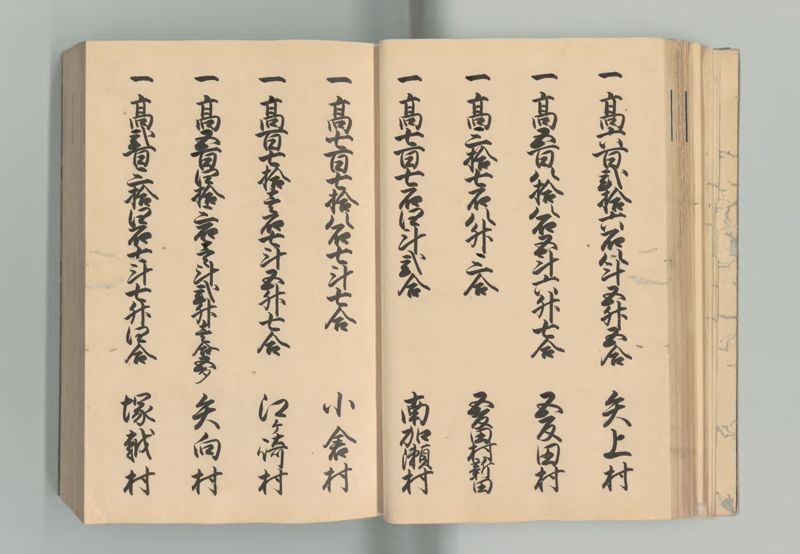 一高六百弐拾六石八斗五升五合 矢上村
一高五百八拾八石五斗六升七合 五反田村
一高三拾七石八升三合 五反田村新田
一高七百七石四斗弐合 南加瀬村
一高七百七拾八石七斗七合 小倉村
一高百七拾壱石七斗五升七合 江ヶ崎村
一高五百四拾三石壱斗弐升七合五夕 矢向村
一高弐百三拾四石七斗七升四合 塚越村